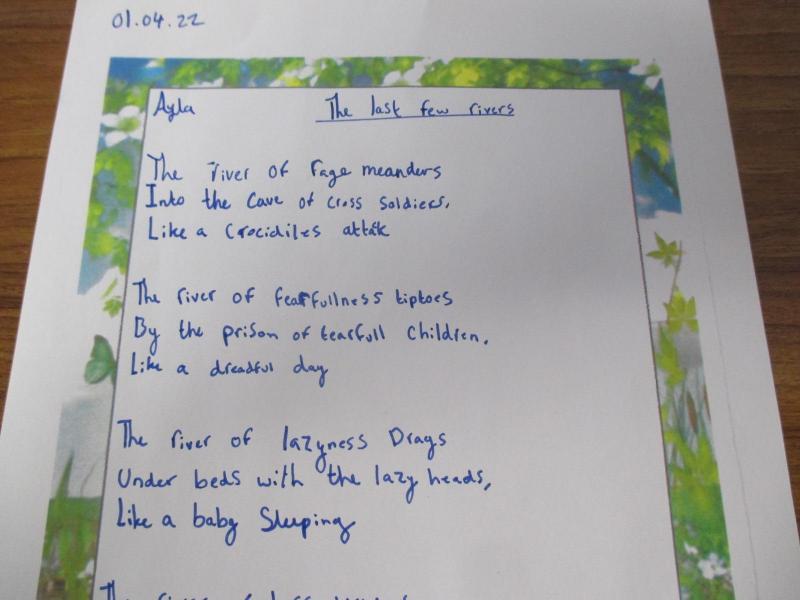 01.04.22
Ayla The last few rivers
The river of rage meanders
Into the cave of cross soldiers,
Like a Crocidiles attak
The river of fearfullness tiptoes
By the prison of tearfull children,
Like a dreadful day
The river of lazyness Drags
Under beds with the lazy heads,
Like a baby Sleeping
The river of